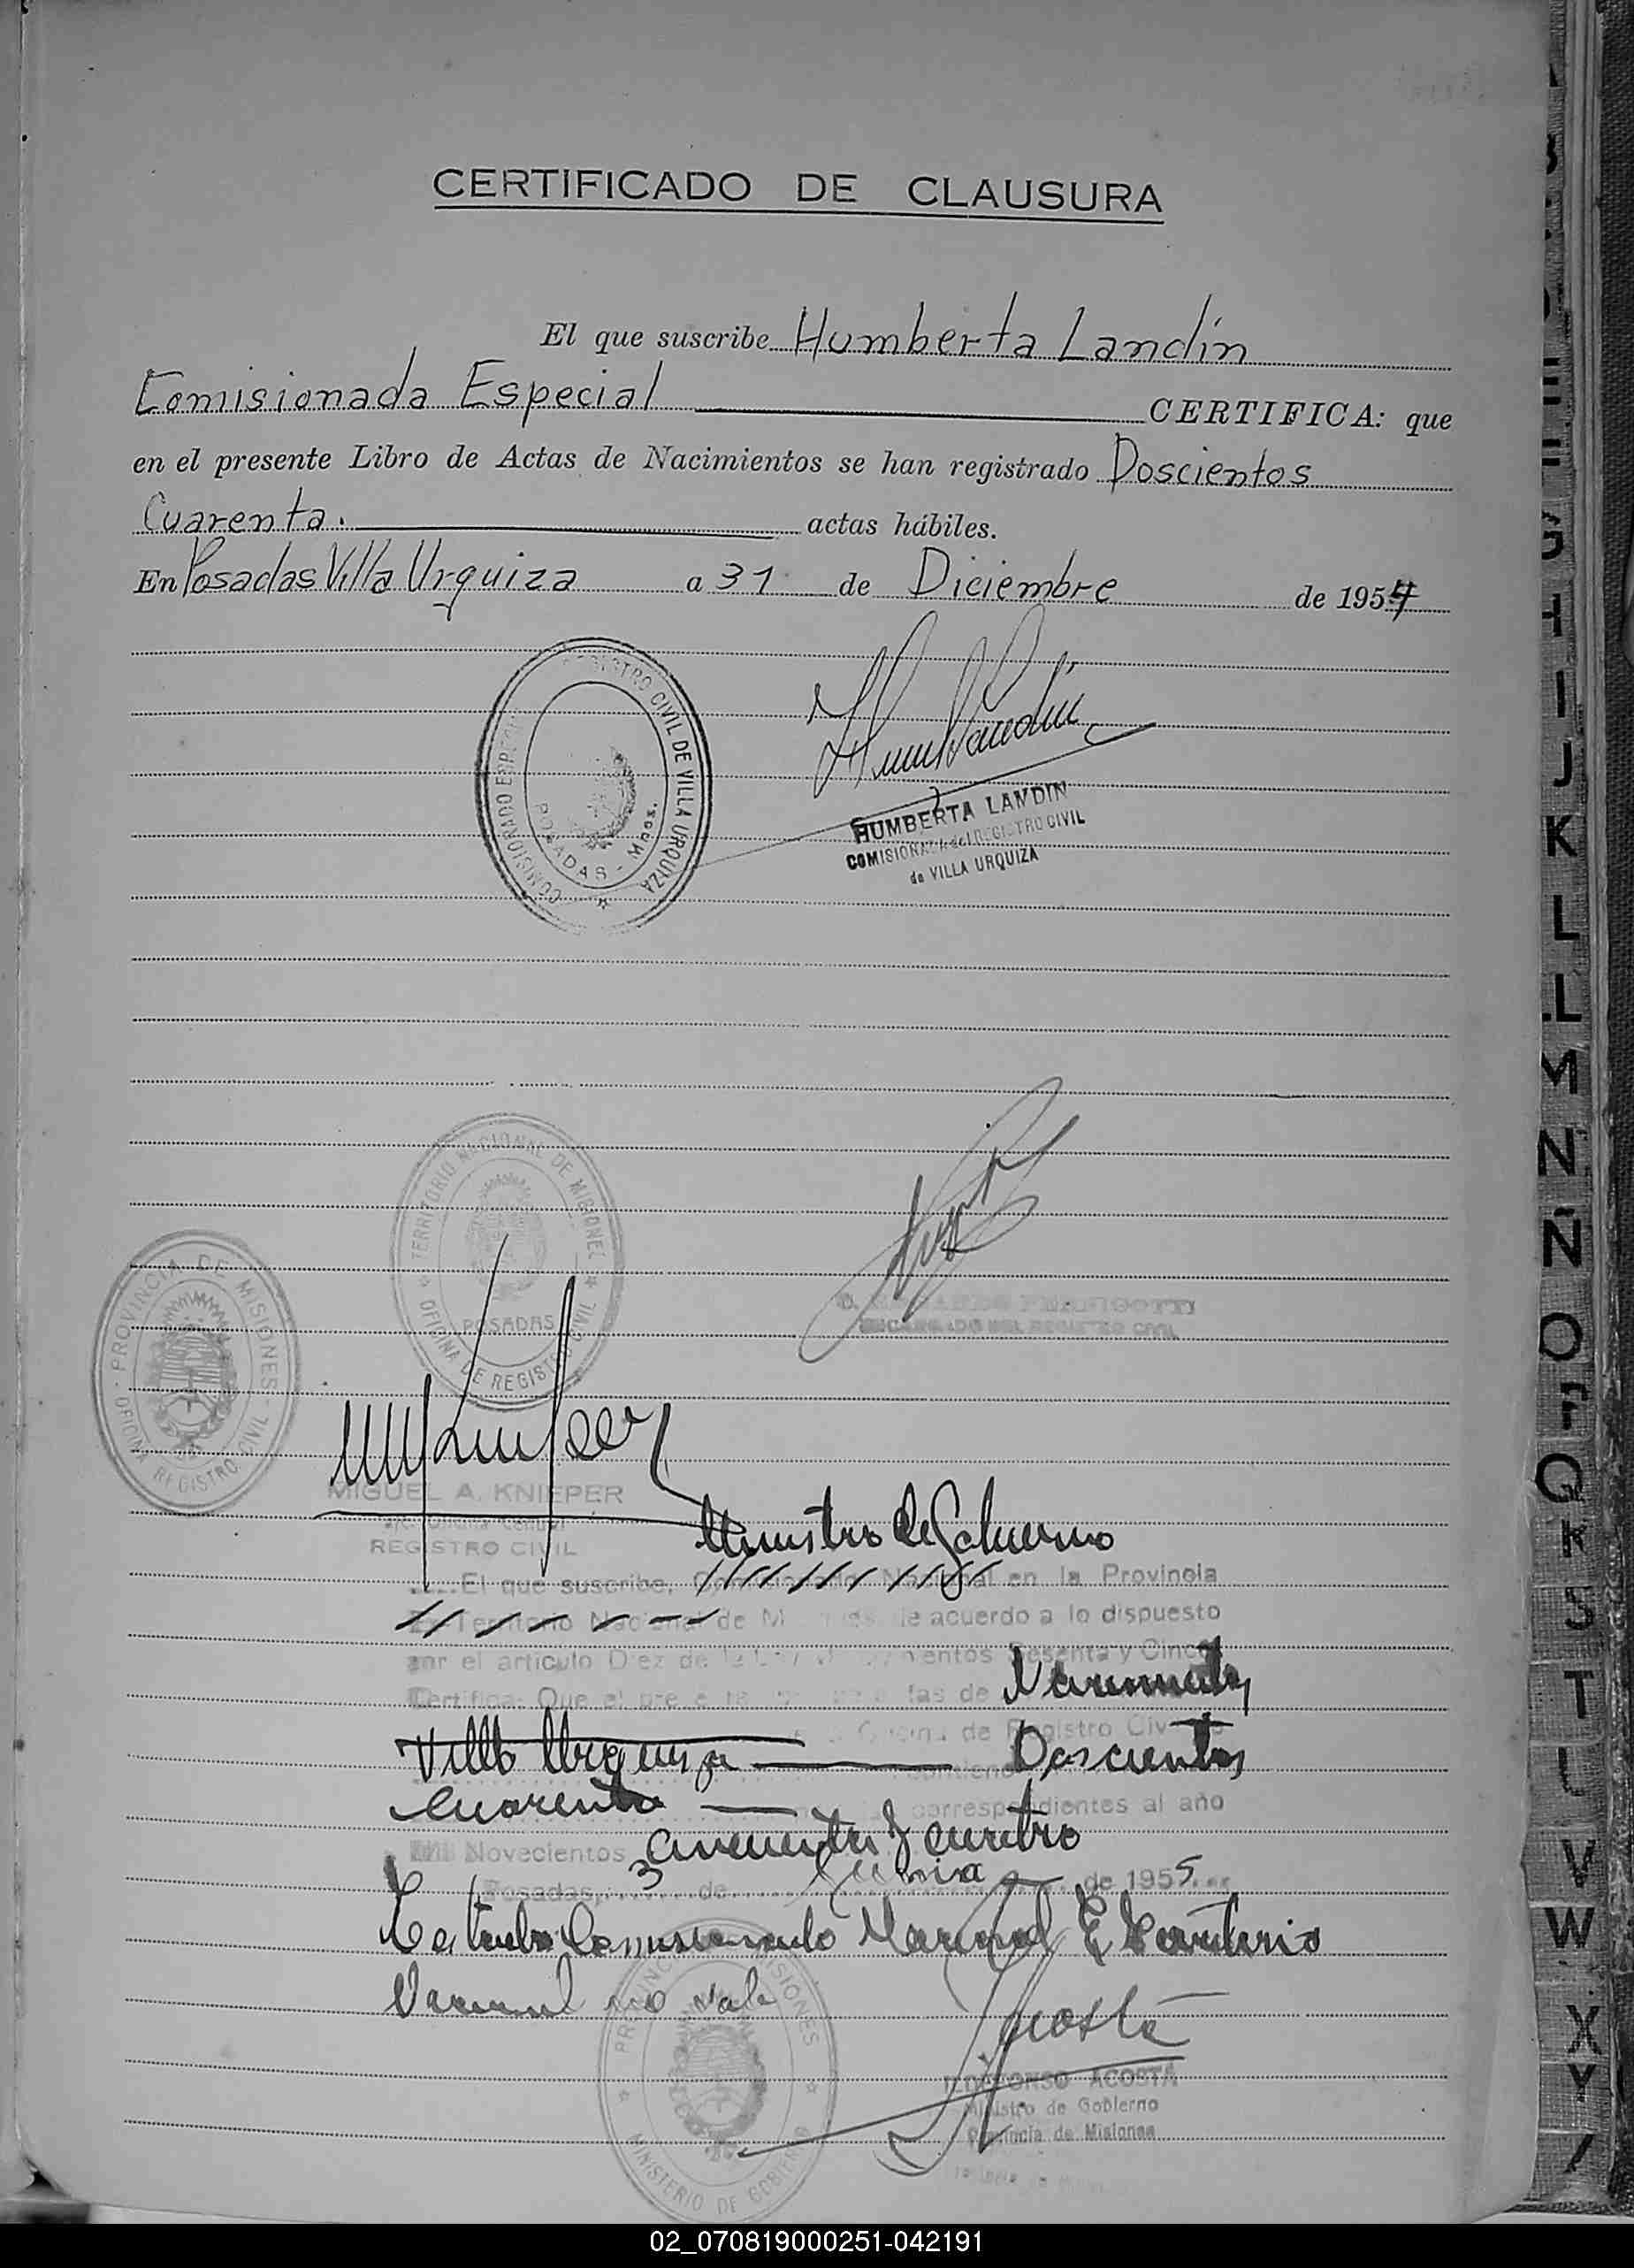 CERTIFICADO DE CLAUSURA
El que suscribe Humberta Landín
Comisionada Especial CERTIFICA: que
en el presente Libro de Actas de Nacimientos se han registrado Doscientos
Cuarenta. actas hábiles.
En Posadas Villa Urquiza a 31 de Diciembre de 1954
REGISTRO CIVIL DE VILLA URQUIZA
COMISIONADO ESPECIAL
POSADAS - Mnes.
HUMBERTA LANDIN
COMISIONADA del REGISTRO CIVIL
de VILLA URQUIZA
TERRITORIO NACIONAL DE MISIONES
POSADAS
OFICINA DE REGISTRO CIVIL
ENCARGADO DEL REGISTRO CIVIL
PROVINCIA DE MISIONES
OFICINA REGISTRO CIVIL
MIGUEL A. KNIEPER
REGISTRO CIVIL
Ministro de Gobierno
El que suscribe, Nacional en la Provincia
Territorio Nacional de de acuerdo a lo dispuesto
por el artículo Diez de Sesenta y Cinco
Certifica: Que el de Nacimientos
Oficina de Registro Civil
Villa Urquiza Doscientos
Cuarenta correspondientes al año
Mil Novecientos cincuenta y cuatro
Posadas, 3 de Junio de 1955
Testado Comisionado Nacional E Secretario
no vale
PROVINCIA DE MISIONES
MINISTERIO DE GOBIERNO
Acosta
ILDEFONSO ACOSTA
Ministro de Gobierno
Provincia de Misiones
I
J
K
L
L
M
N
Ñ
O
P
Q
R
S
T
V
W
X
Y
02_070819000251-042191